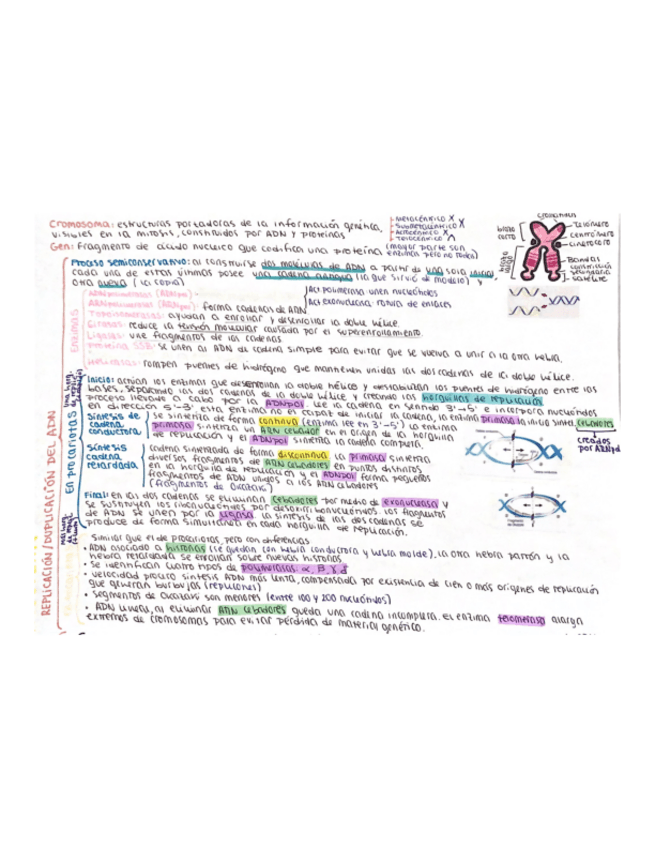 Cromosoma: estructuras portadoras de la información genética,
visibles en la mitosis, construidos por ADN y proteínas
Gen: Fragmento de ácido nucleico que codifica una proteína (mayor parte son enzimas pero no todas)
Metacéntrico
Submetacéntrico
Acrocéntrico
Telocéntrico
Cromátida
brazo corto
brazo largo
Telómero
centrómero
cinetocoro
Bandas
constricción secundaria
satélite
REPLICACIÓN/DUPLICACIÓN DEL ADN
Proceso semiconservativo: al construirse dos moléculas de ADN a partir de una sola inicial,
cada una de estas últimas posee una cadena antigua (la que sirvió de modelo) y
otra nueva (la copia)
ENZIMAS
forma cadenas de ADN
Act polimerasa: unen nucleótidos
Act exonucleasa: rotura de enlaces
Topoisomerasas: ayudan a enrollar y desenrollar la doble hélice.
Girasas: reduce la tensión molecular causada por el superenrollamiento.
Ligasas: une fragmentos de las cadenas
Proteína SSB: se unen al ADN de cadena simple para evitar que se vuelva a unir a la otra hebra.
Helicasas: rompen puentes de hidrógeno que mantienen unidas las dos cadenas de la doble hélice.
En procariotas
Inicio: actúan las enzimas que desenrollan la doble hélice y desestabilizan los puentes de hidrógeno entre las
bases, separando las dos cadenas de la doble hélice y creando las horquillas de replicación
proceso llevado a cabo por la ADNpol. Lee la cadena en sentido 3'→5' e incorpora nucleótidos
en dirección 5'-3' esta enzima no es capaz de iniciar la cadena, la enzima primasa la inicia cebadores
creados por ARNpd
Síntesis de cadena conductora
se sintetiza de forma continua (enzima lee en 3'-5') la enzima
primasa sintetiza un ARN cebador en el origen de la horquilla
de replicación y el ADNpol sintetiza la cadena completa.
Síntesis cadena retardada
cadena sintetizada de forma discontinua, la primasa sintetiza
diversos fragmentos de ARN cebadores en puntos distintos
en la horquilla de replicación y el ADNpol forma pequeños
fragmentos de ADN unidos a los ARN cebadores
(Fragmentos de Okazaki)
Final: en las dos cadenas se eliminan cebadores por medio de exonucleasa y
se sustituyen los ribonucleótidos por desoxirribonucleótidos. Los fragmentos
de ADN se unen por la ligasa. La síntesis de las dos cadenas se
produce de forma simultánea en cada horquilla de replicación.
Similar que el de procariotas, pero con diferencias
• ADN asociado a histonas (se quedan con hebra conductora y hebra molde), la otra hebra patrón y la
hebra retardada se enrollan sobre nuevas histonas
• Se identifican cuatro tipos de polimerasas: α, β, γ, δ
• velocidad proceso síntesis ADN más lenta, compensada por existencia de cien o más orígenes de replicación
que generan burbujas (replicones)
• segmentos de Okazaki son menores (entre 100 y 200 nucleótidos)
• ADN lineal, al eliminar ARN cebadores queda una cadena incompleta. El enzima telomerasa alarga
extremos de cromosomas para evitar pérdida de material genético.